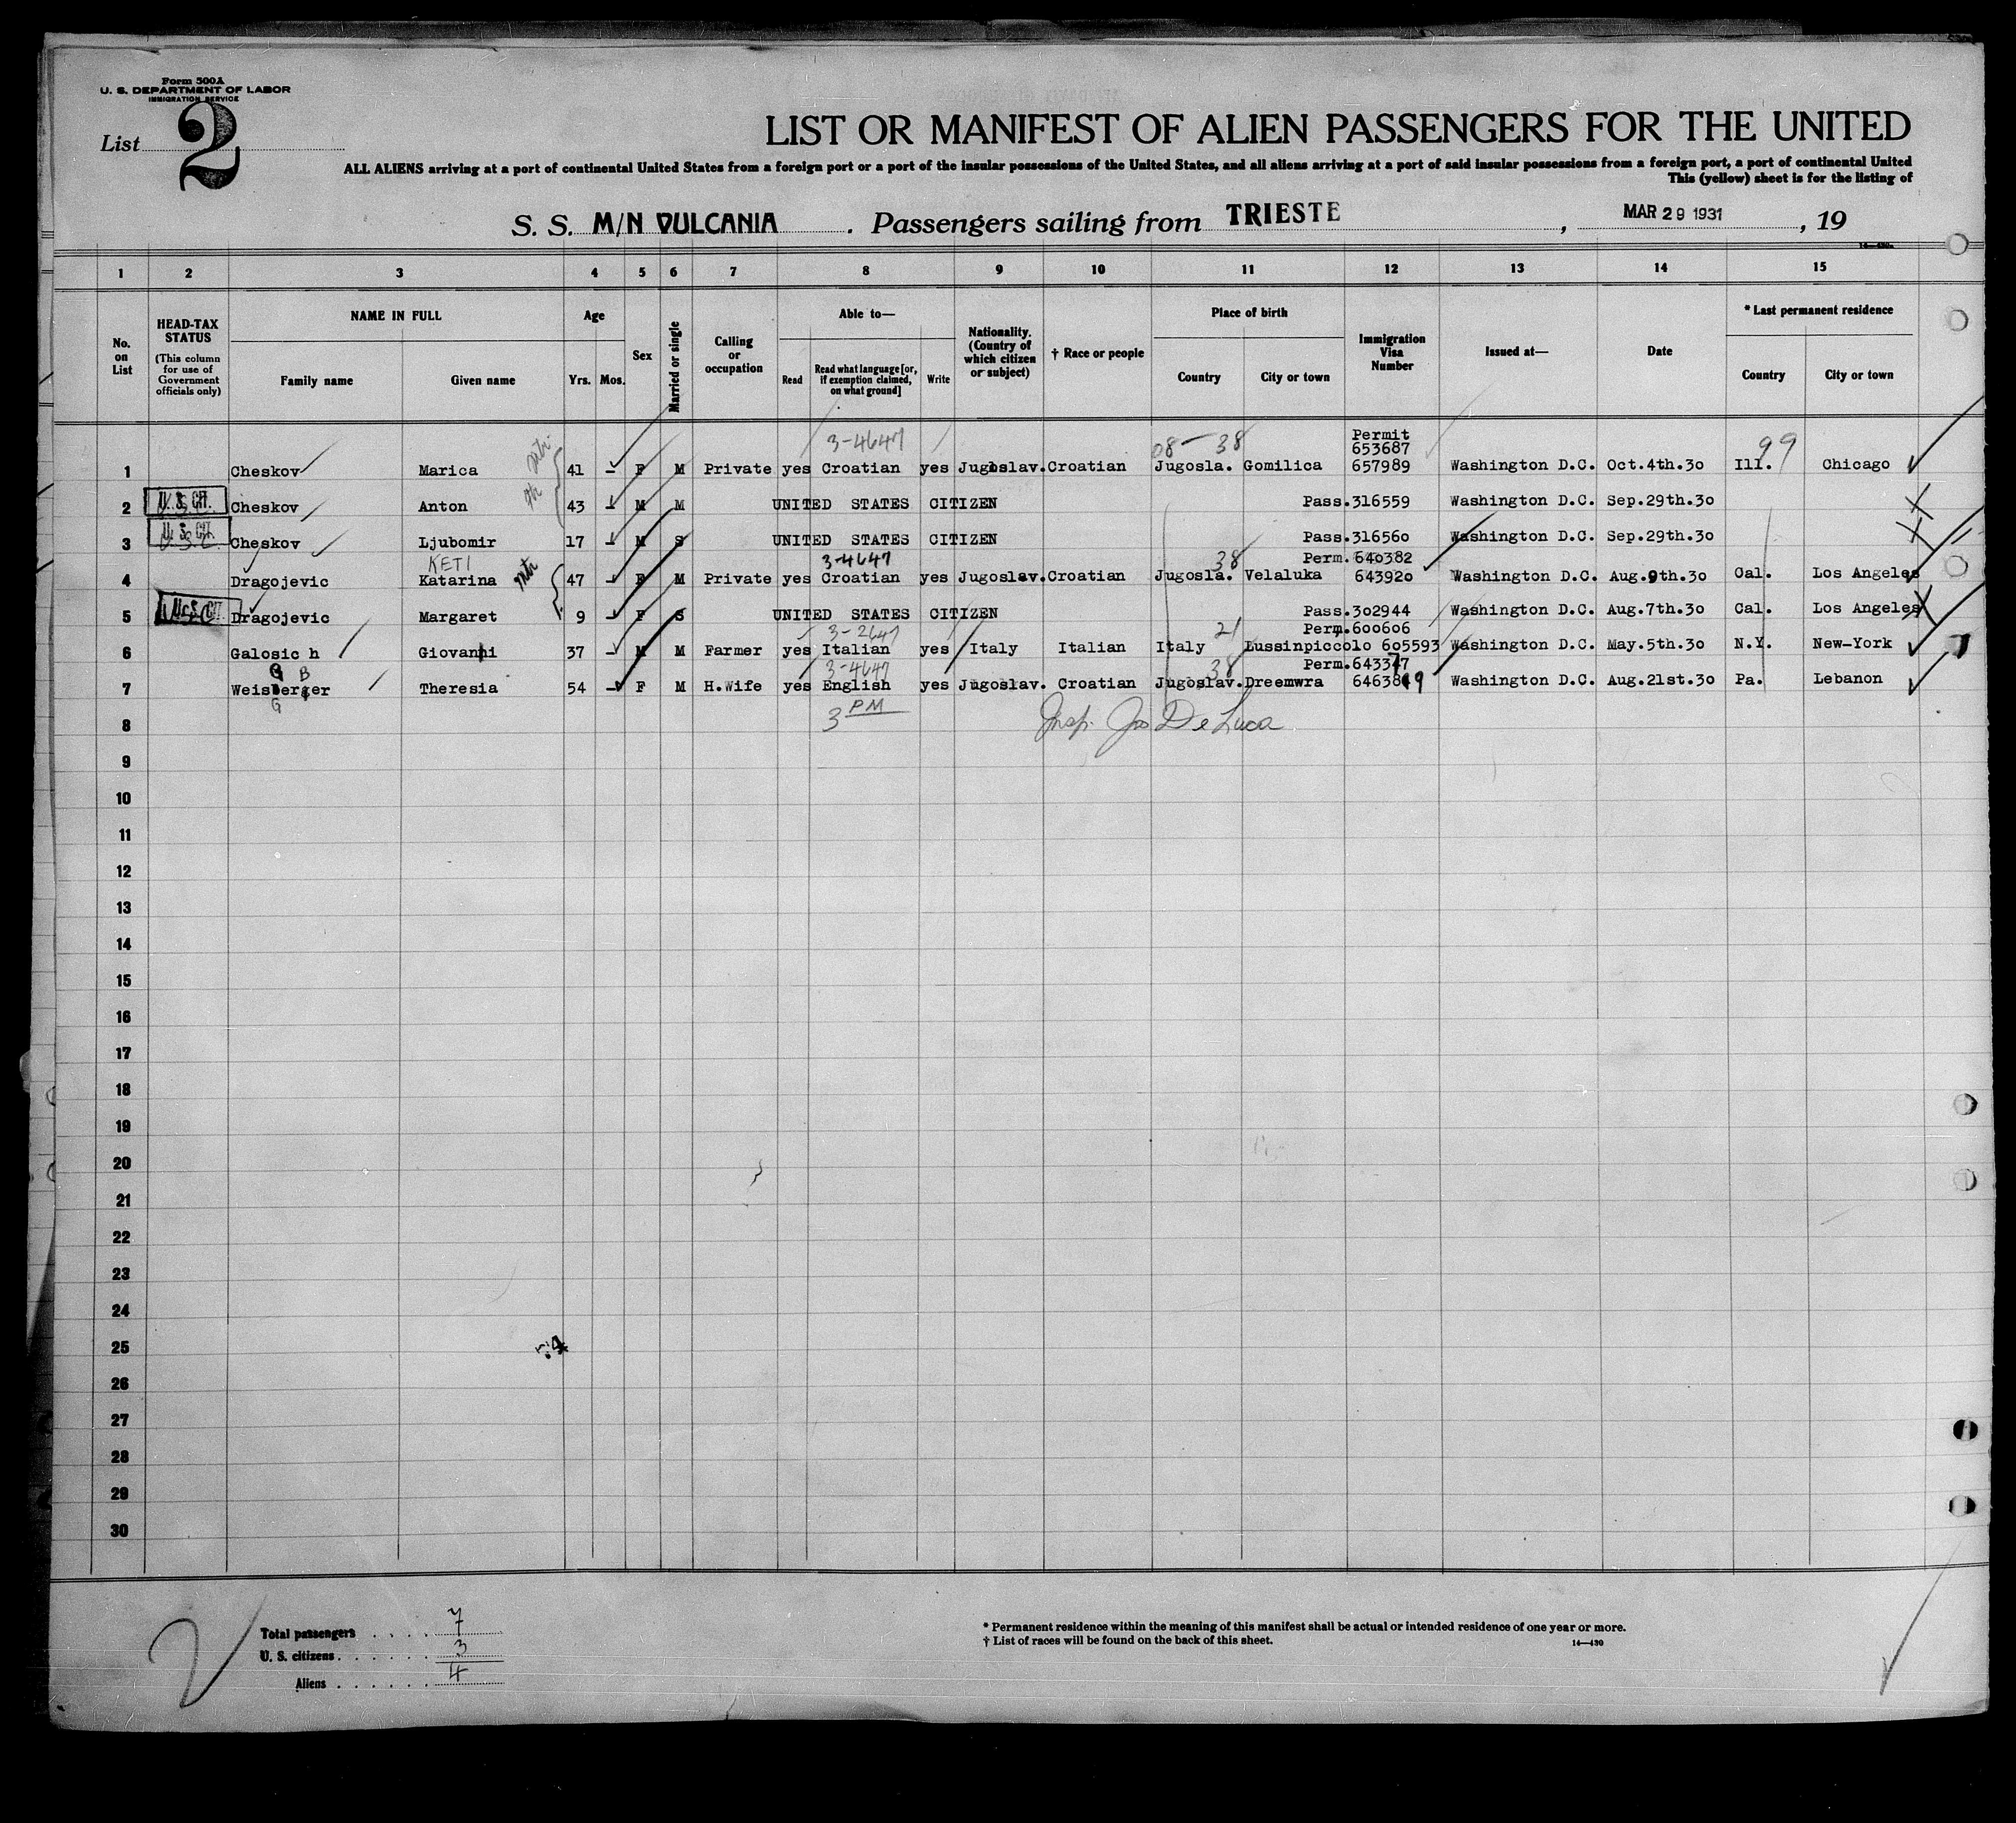 Form 500A
U. S. DEPARTMENT OF LABOR
IMMIGRATION SERVICE
List 2
LIST OR MANIFEST OF ALIEN PASSENGERS FOR THE UNITED
ALL ALIENS arriving at a port of continental United States from a foreign port or a port of the insular possessions of the United States, and all aliens arriving at a port of said insular possessions from a foreign port, a port of continental United
This (yellow) sheet is for the listing of
S. S. M/N VULCANIA. Passengers sailing from TRIESTE, MAR 29 1931, 19
14—430
1 2 3 4 5 6 7 8 9 10 11 12 13 14 15
No. on List
HEAD-TAX STATUS
(This column for use of Government officials only)
NAME IN FULL
Family name Given name
Age
Yrs. Mos.
Sex
Married or single
Calling or occupation
Able to—
Read Read what language [or, if exemption claimed, on what ground] Write
Nationality. (Country of which citizen or subject)
† Race or people
Place of birth
Country City or town
Immigration Visa Number
Issued at—
Date
* Last permanent residence
Country City or town
3-4647 08-38 Permit 99
653687
1 Cheskov Marica 41 - F M Private yes Croatian yes Jugoslav. Croatian Jugosla. Gomilica 657989 Washington D.C. Oct.4th.30 Ill. Chicago
2 U.S. CIT. Cheskov Anton 43 - M M UNITED STATES CITIZEN Pass.316559 Washington D.C. Sep.29th.30
3 U.S. CIT. Cheskov Ljubomir 17 - M S UNITED STATES CITIZEN Pass.316560 Washington D.C. Sep.29th.30
KETI 3-4647 38 Perm.640382
4 Dragojevic Katarina 47 - F M Private yes Croatian yes Jugoslav. Croatian Jugosla. Velaluka 643920 Washington D.C. Aug.9th.30 Cal. Los Angeles
5 U.S. CIT. Dragojevic Margaret 9 - F S UNITED STATES CITIZEN Pass.302944 Washington D.C. Aug.7th.30 Cal. Los Angeles
3-2647 21 Perm.600606
6 Galosic h Giovanni 37 - M M Farmer yes Italian yes Italy Italian Italy Lussinpiccolo 605593 Washington D.C. May.5th.30 N.Y. New-York
G B 3-4647 38 Perm.643347
7 Weisberger Theresia 54 - F M H.Wife yes English yes Jugoslav. Croatian Jugoslav. Dreemwra 646389 Washington D.C. Aug.21st.30 Pa. Lebanon
G
3 PM Insp. Jos De Luca
8
9
10
11
12
13
14
15
16
17
18
19
20
21
22
23
24
25
26
27
28
29
30
Total passengers . . . . 7
U. S. citizens . . . . . . 3
Aliens . . . . . . 4
* Permanent residence within the meaning of this manifest shall be actual or intended residence of one year or more.
† List of races will be found on the back of this sheet. 14—430